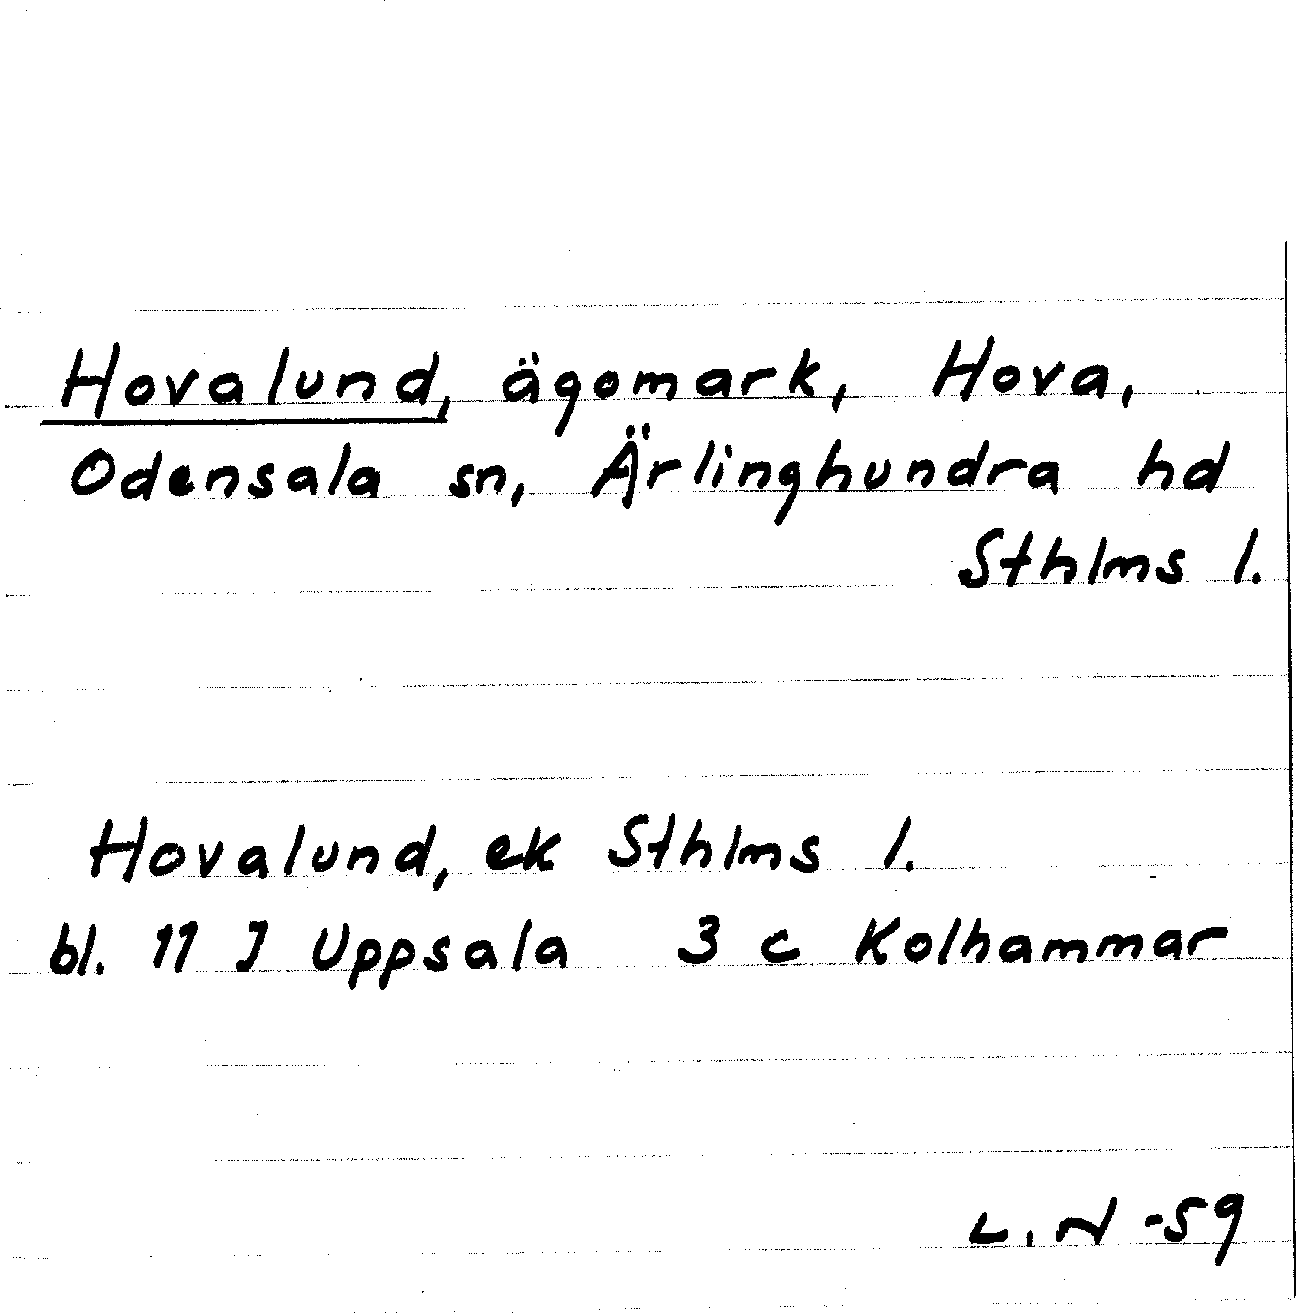 Hovalund, ägomark, Hova,
Odensala sn, Ärlinghundra hd
Sthlms l.
Hovalund, ek Sthlms l.
bl. 11 J Uppsala 3 c Kolhammar
L. N -59